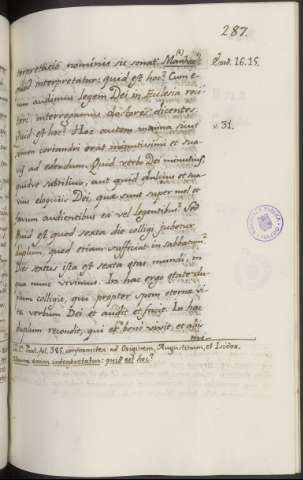 287.
terpretatio nominis sic sonat: Manhu?
quod interpretatur: quid est hoc? Cum e-
nim audimus legem Dei in Ecclesia reci-
tari: interrogamus doctores dicentes:
Quid est hoc? Hoc autem manna sicut
semen coriandri erat minutissimum et sua-
ve ad edendum. Quid verbo Dei minutius,
quidve subtilius, aut quid dulcius et sua-
vius eloquiis Dei, quae sunt super mel et
favum audientibus ea vel legentibus? Sed
Quid est quod sexta die colligi jubetur
duplum, quod etiam sufficiat in sabbatum?
Dies sextus ista est sexta aetas mundi, in
qua nunc vivimus. In hac ergo aetate du-
plum colligit, qui propter spem aeternae vi-
tae verbum Dei et audit et facit. In hac
duplum recondit, qui et bene vivit, et aliis
16.15.
v. 31.
Paul. fol. 385. conformiter ad Origenem, Augustinum, et Isidor.
interpretatur: quid est hoc?